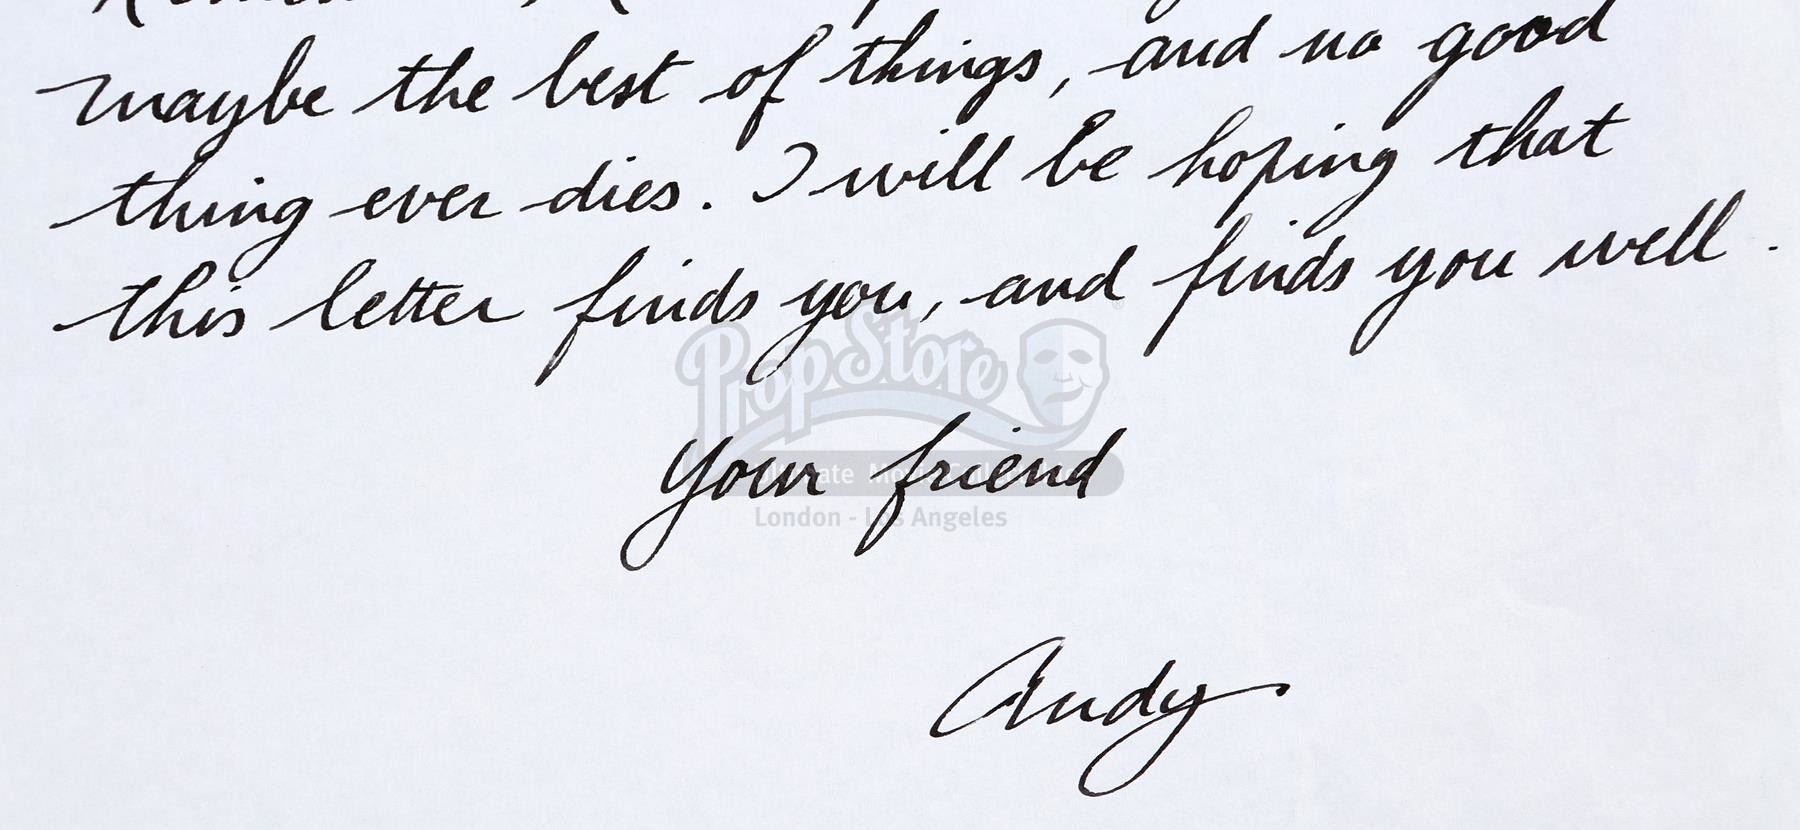 maybe the best of things, and no good
thing ever dies. I will be hoping that
this letter finds you, and finds you well.
PropStore
Your friend
London - Los Angeles
Andy